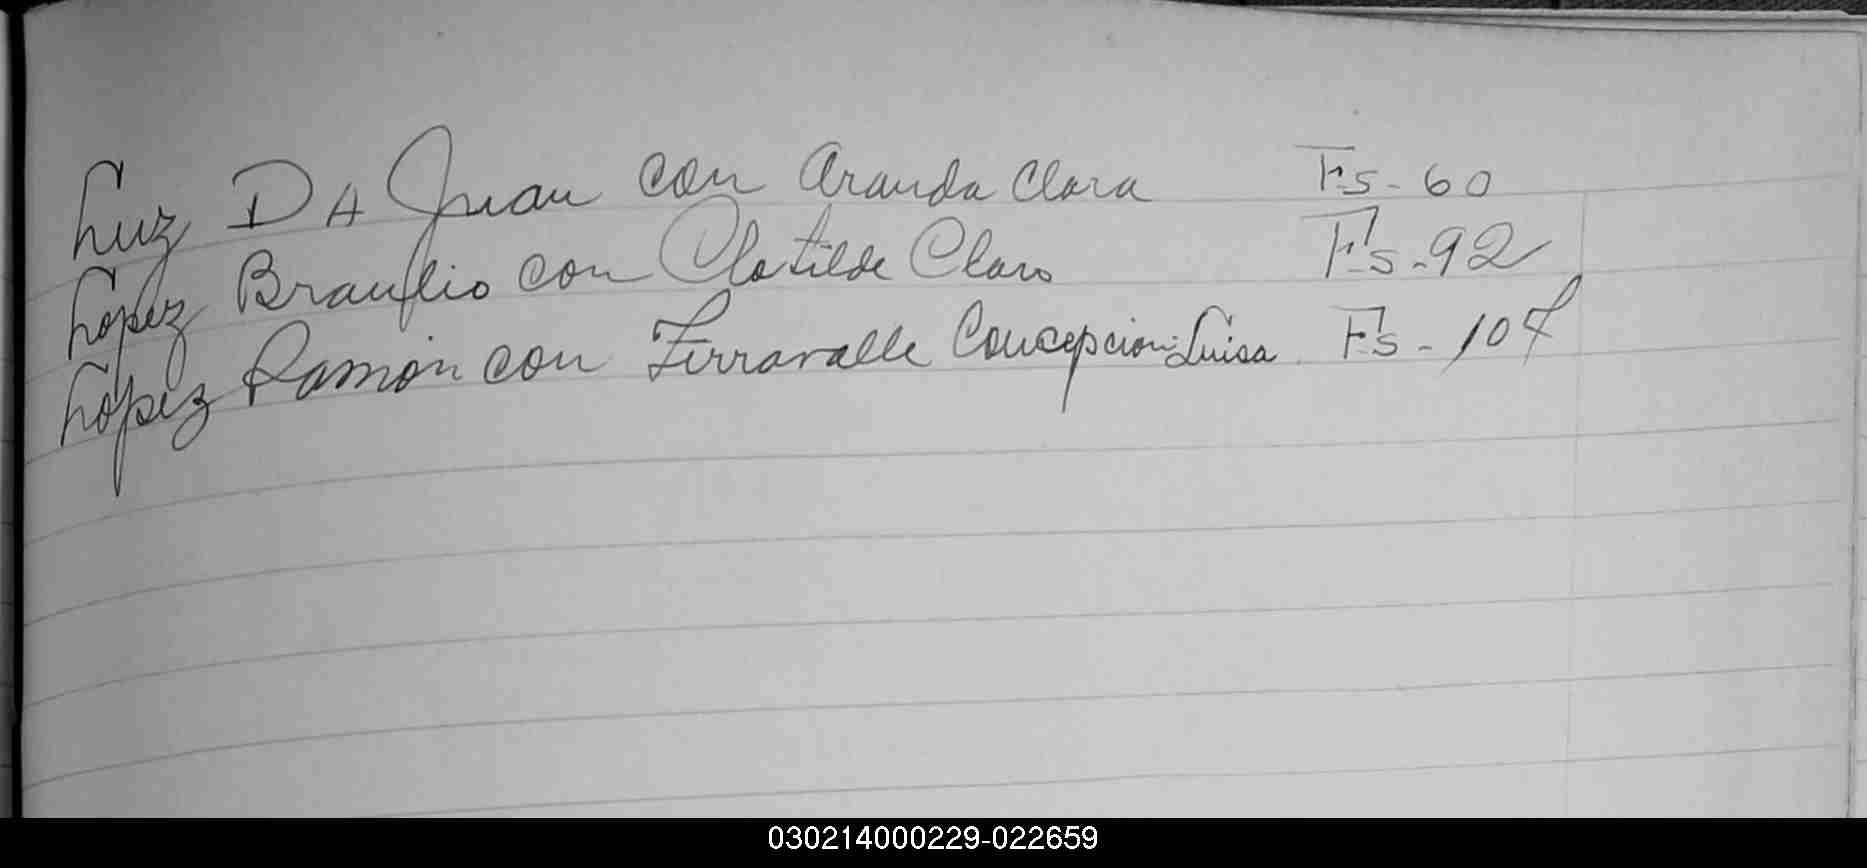 Luz DA Juan con Aranda Clara Fs-60
Lopez Braulio con Clotilde Claro Fs-92
Lopez Ramón con Ferraralle Concepcion-Luisa Fs-104
030214000229-022659